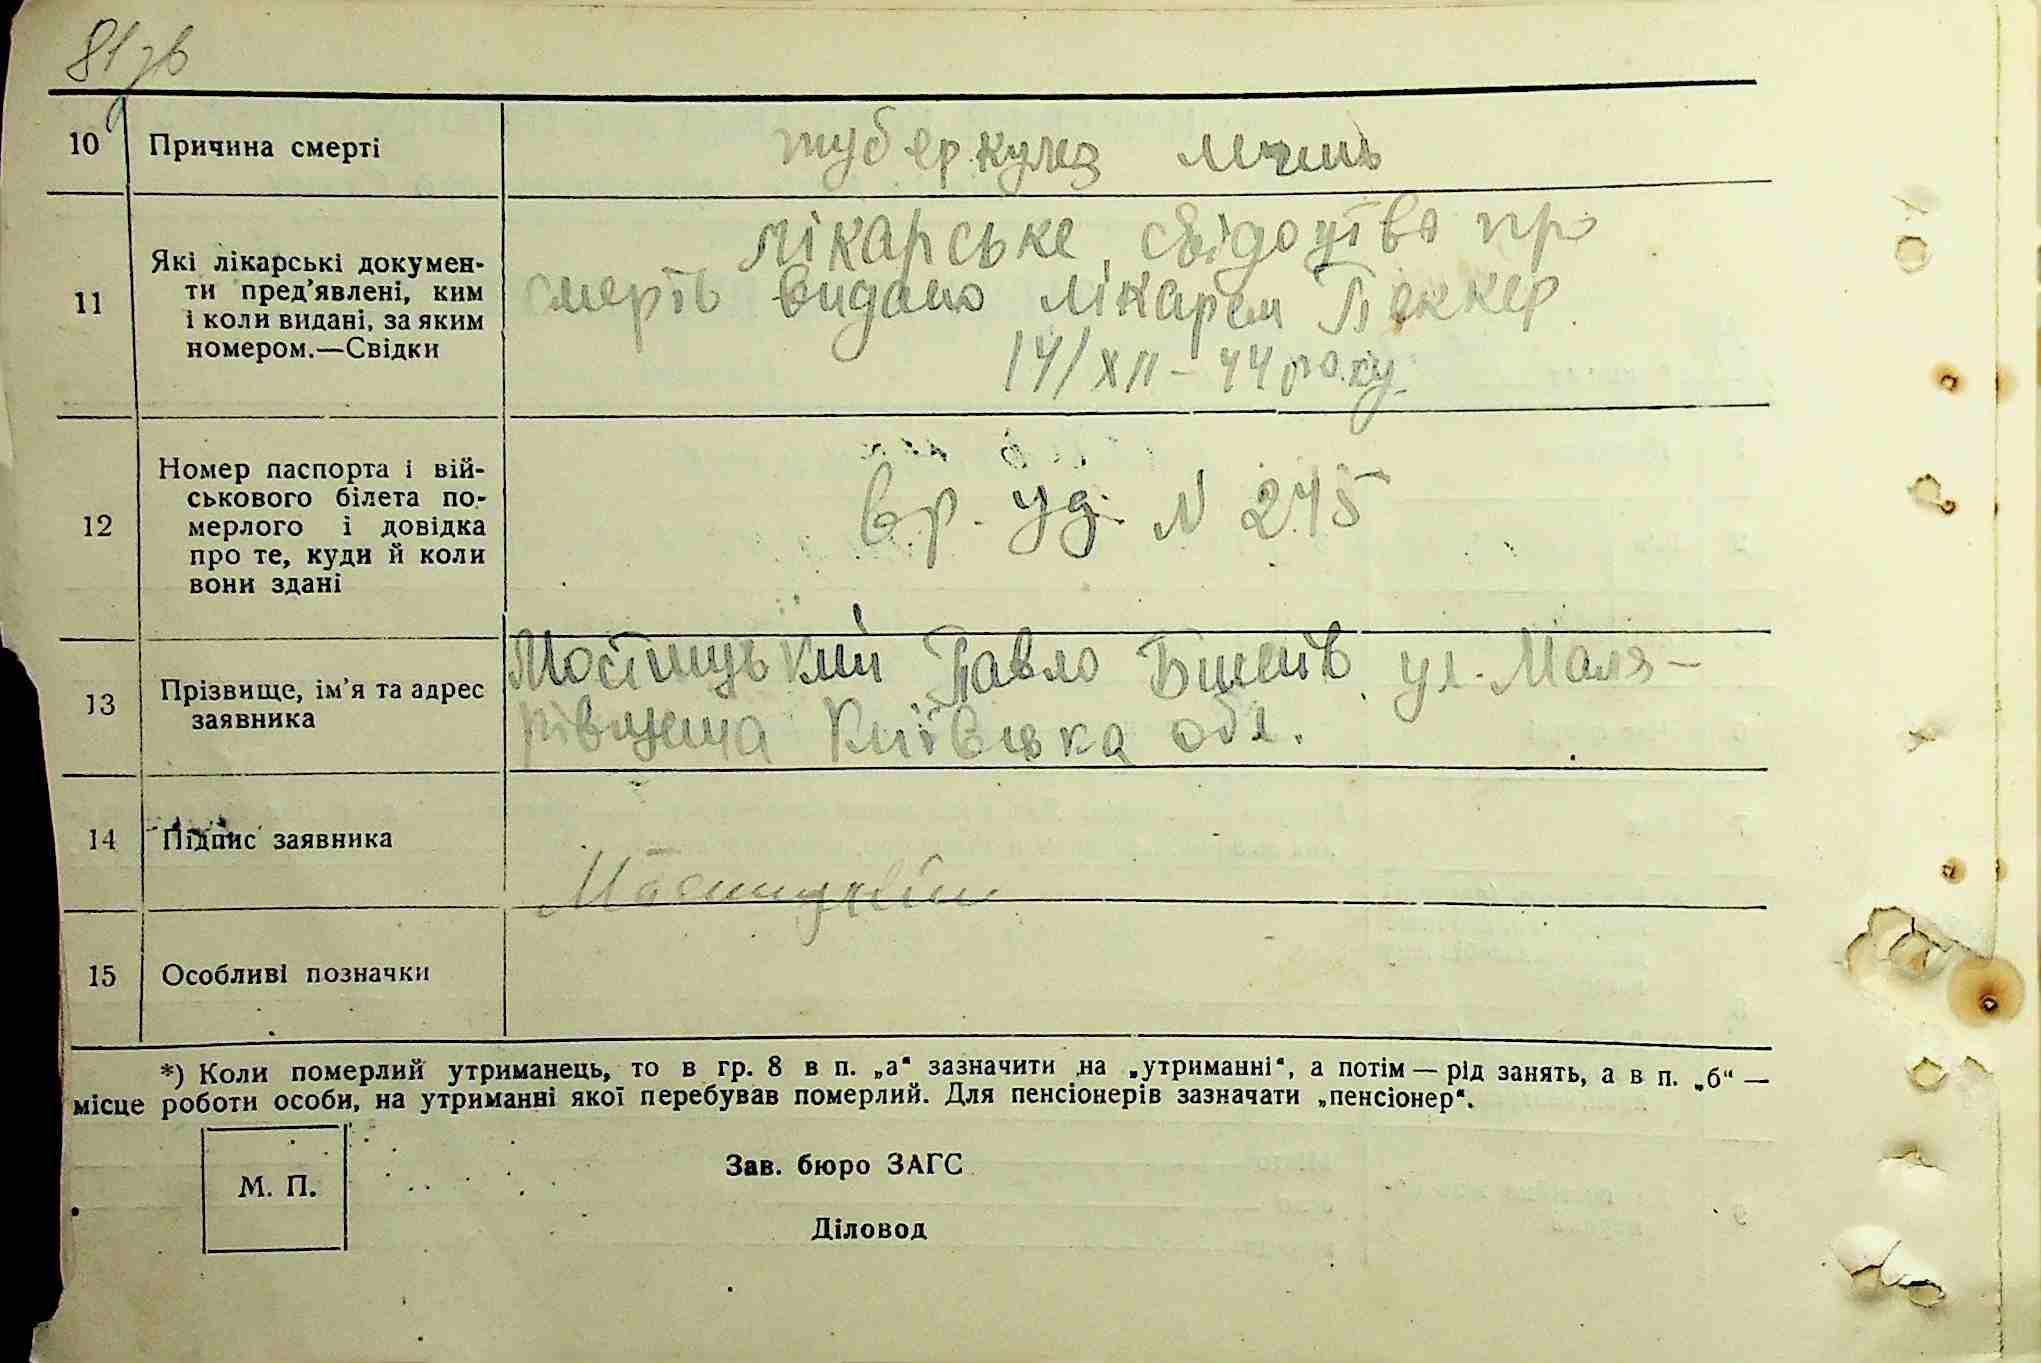 81зв
10 Причина смерті туберкулез легень
11 Які лікарські докумен-
ти пред'явлені, ким
і коли видані, за яким
номером.—Свідки
лікарське свідоцтво про
смерть видано лікарем Беккер
14/XII - 44 року
12 Номер паспорта і вій-
ськового білета по-
мерлого і довідка
про те, куди й коли
вони здані
вр. уд. N 245
13 Прізвище, ім'я та адрес
заявника
Мостицький Павло ул. Маля-
Київська обл.
14 Підпис заявника
15 Особливі позначки
*) Коли померлий утриманець, то в гр. 8 в п. „а“ зазначити на „утриманні“, а потім — рід занять, а в п. „б“ —
місце роботи особи, на утриманні якої перебував померлий. Для пенсіонерів зазначати „пенсіонер“.
М. П.
Зав. бюро ЗАГС
Діловод